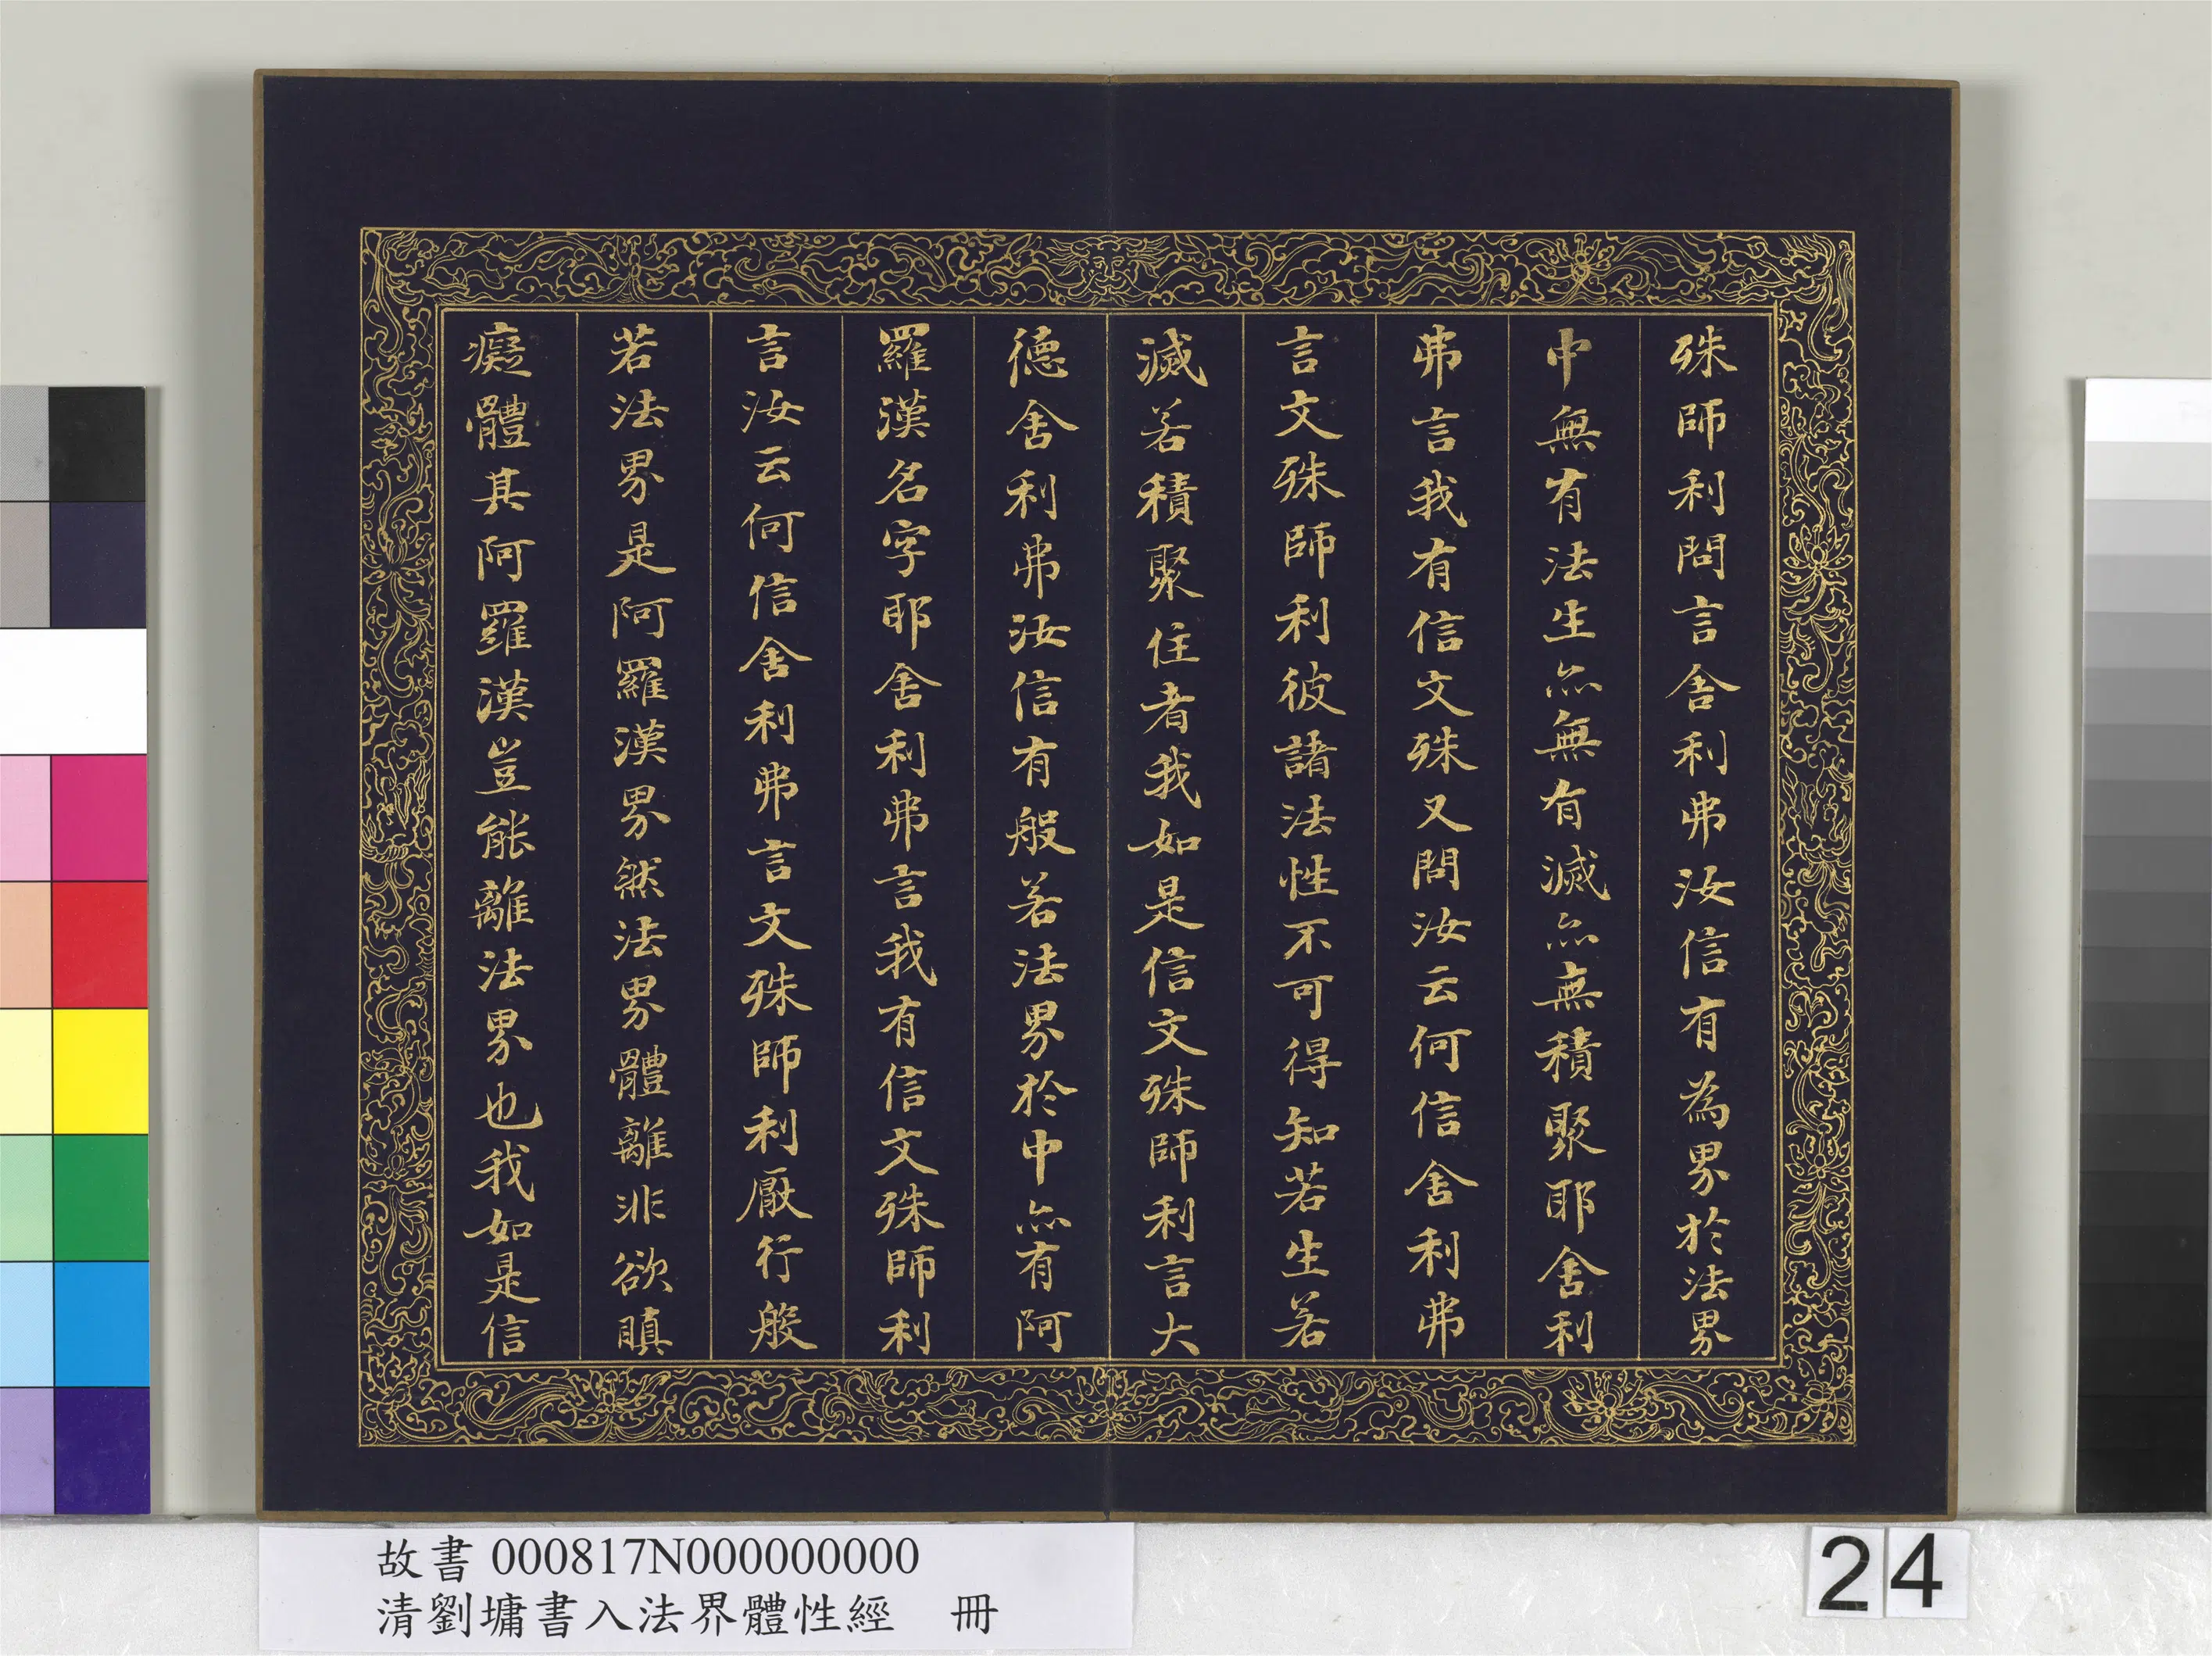 殊師利問言舍利弗汝信有為界於法界
中無有法生亦無有滅亦無積聚耶舍利
弗言我有信文殊又問汝云何信舍利弗
言文殊師利彼諸法性不可得知若生若
滅若積聚住者我如是信文殊師利言大
德舍利弗汝信有般若法界於中亦有阿
羅漢名字耶舍利弗言我有信文殊師利
言汝云何信舍利弗言文殊師利厭行般
若法界是阿羅漢界然法界體離非欲瞋
癡體其阿羅漢豈能離法界也我如是信
故書 000817N000000000
清劉墉書入法界體性經 冊
24